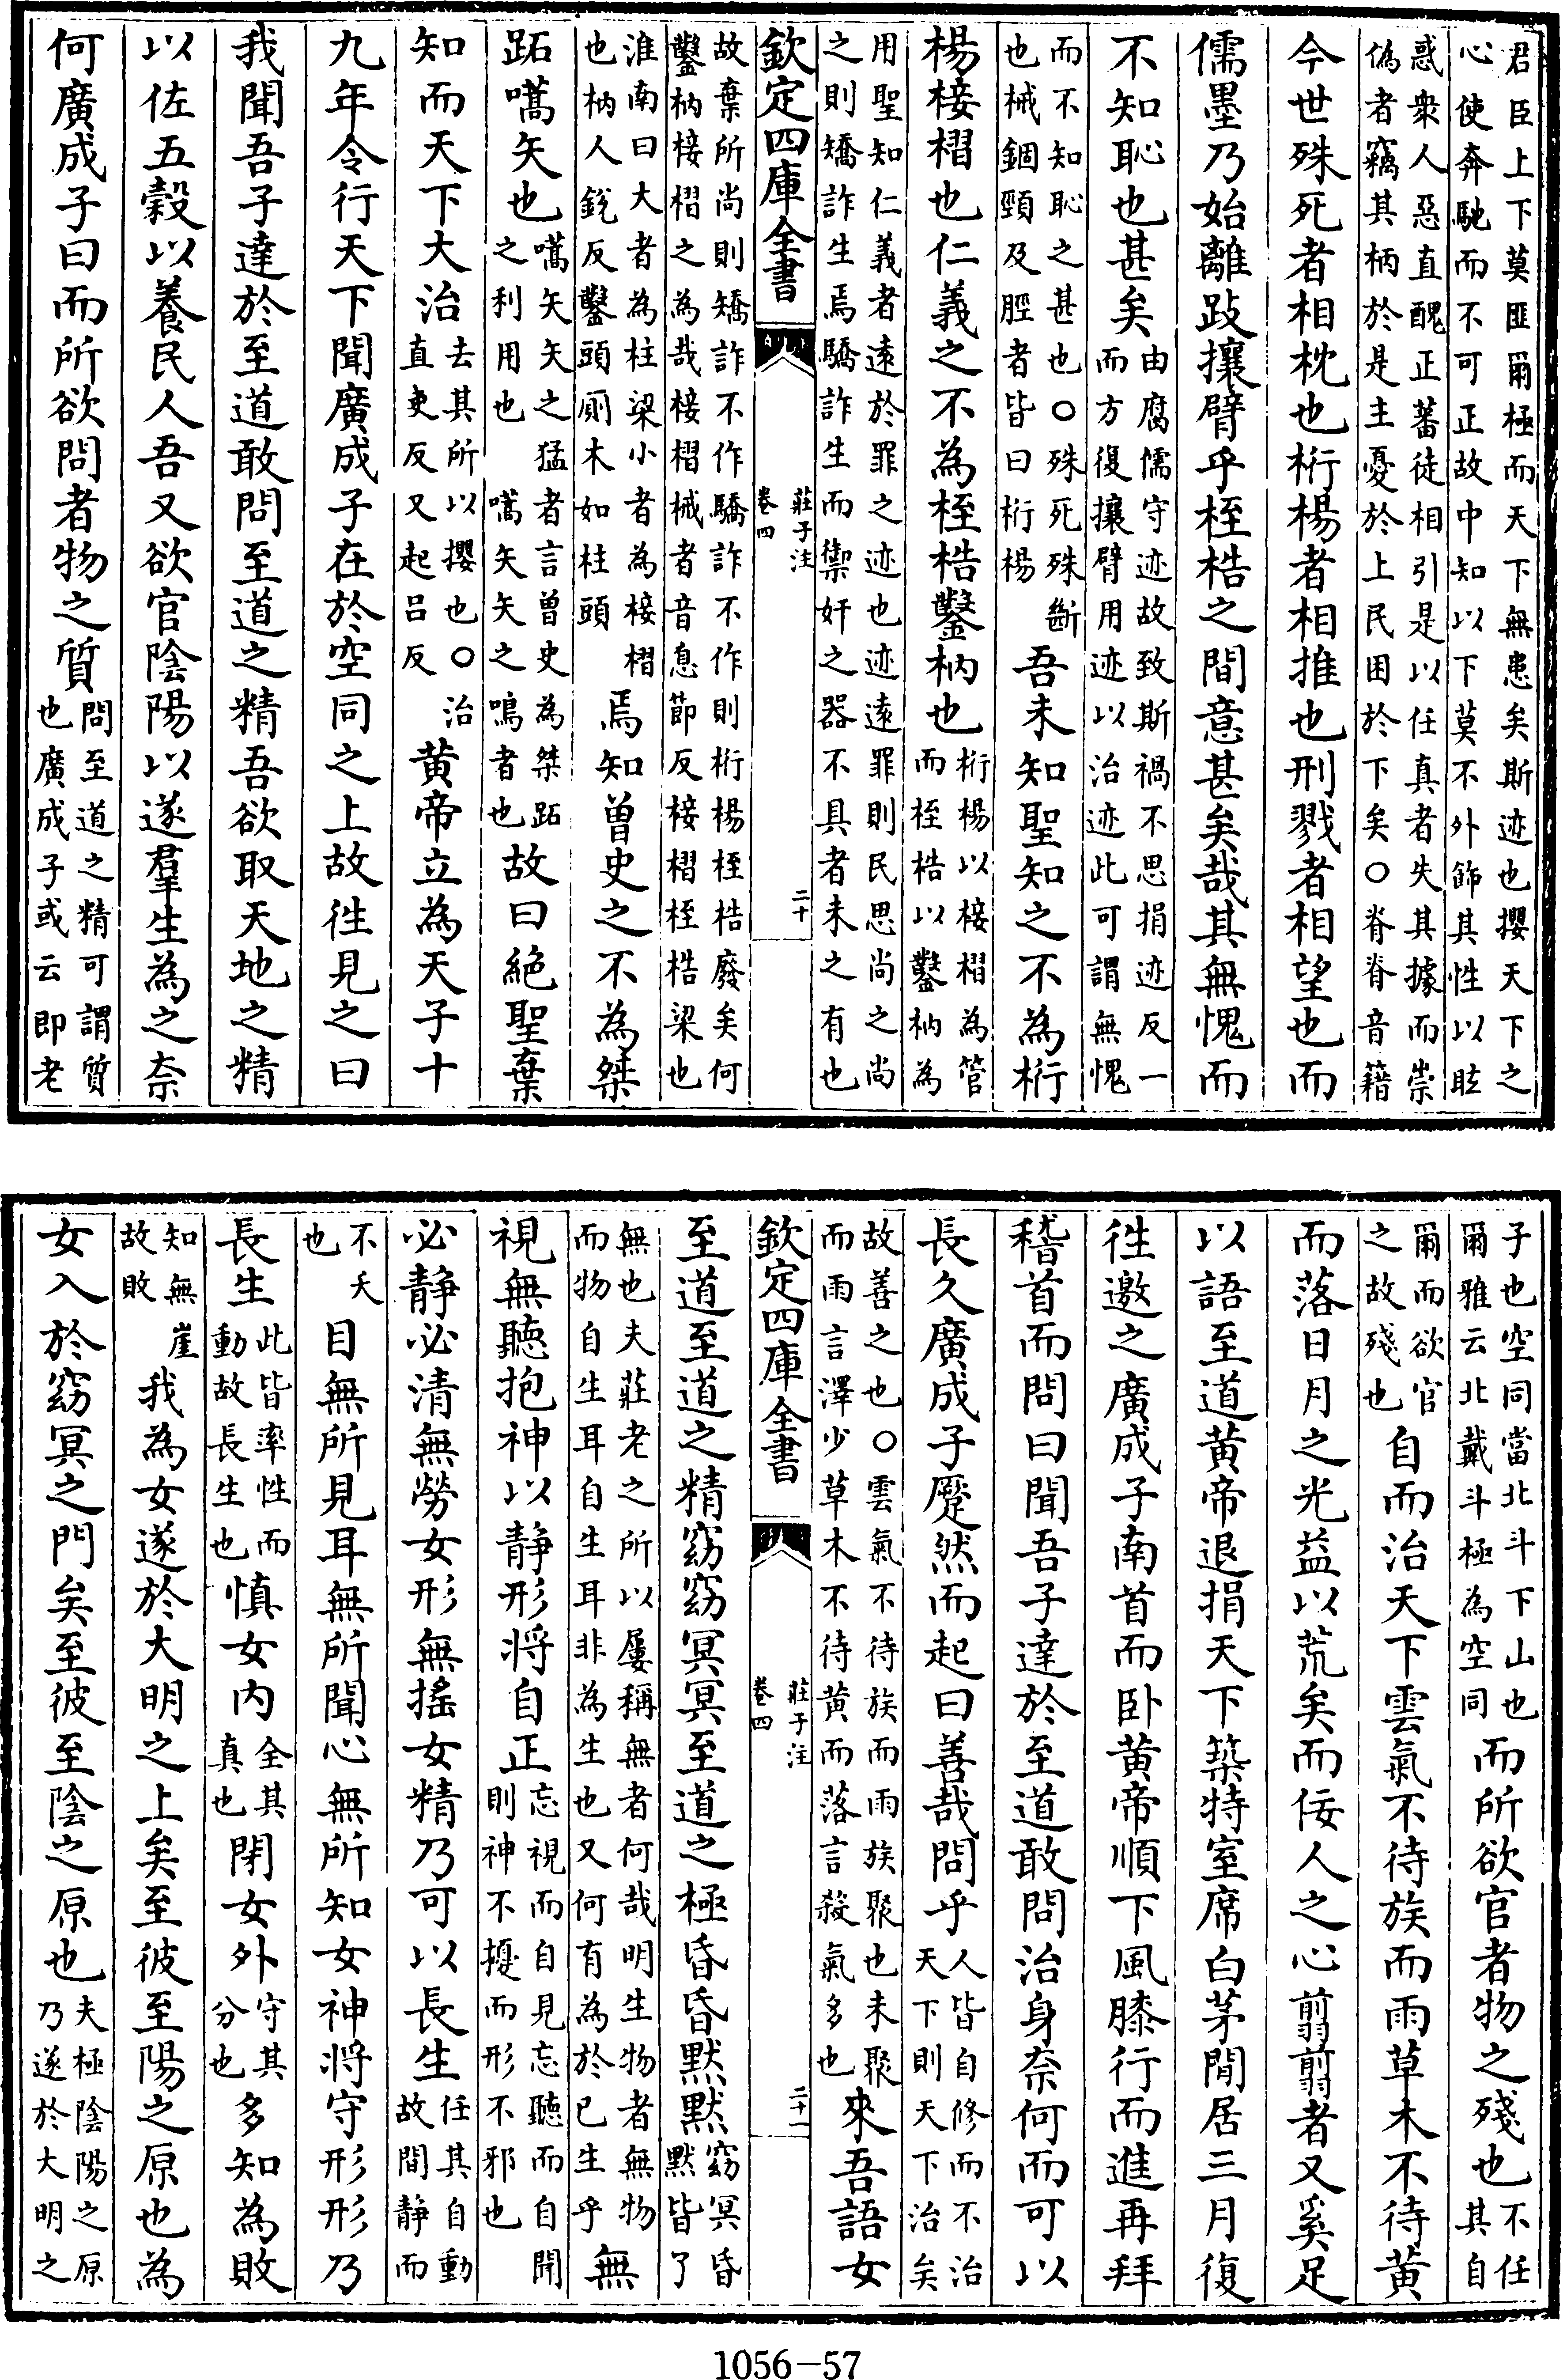 君臣上下莫匪爾極而天下無患矣斯迹也攖天下之
心使奔馳而不可正故中知以下莫不外飾其性以眩
惑衆人惡直醜正蕃徒相引是以任真者失其據而崇
偽者竊其柄於是主憂於上民困於下矣○脊脊音籍
今世殊死者相枕也桁楊者相推也刑戮者相望也而
儒墨乃始離跂攘臂乎桎梏之間意甚矣哉其無愧而
不知恥也甚矣
由腐儒守迹故致斯禍不思捐迹反一
而方復攘臂用迹以治迹此可謂無愧
而不知恥之甚也○殊死殊斷
也械錮頸及脛者皆曰桁楊
吾未知聖知之不為桁
楊椄槢也仁義之不為桎梏鑿枘也
桁楊以椄槢為管
而桎梏以鑿枘為
用聖知仁義者遠於罪之迹也迹遠罪則民思尚之尚
之則矯詐生焉驕詐生而禦奸之器不具者未之有也
欽定四庫全書
莊子注
卷四
二十
故棄所尚則矯詐不作驕詐不作則桁楊桎梏廢矣何
鑿枘椄槢之為哉椄槢械者音息節反椄槢桎梏梁也
淮南曰大者為柱梁小者為椄槢
也枘人銳反鑿頭廁木如柱頭
焉知曾史之不為桀
跖嚆矢也
嚆矢矢之猛者言曾史為桀跖
之利用也嚆矢矢之鳴者也
故曰絕聖棄
知而天下大治
去其所以攖也○治
直吏反又起呂反
黃帝立為天子十
九年令行天下聞廣成子在於空同之上故往見之曰
我聞吾子達於至道敢問至道之精吾欲取天地之精
以佐五穀以養民人吾又欲官陰陽以遂羣生為之奈
何廣成子曰而所欲問者物之質
問至道之精可謂質
也廣成子或云即老
子也空同當北斗下山也
爾雅云北戴斗極為空同
而所欲官者物之殘也
不任
其自
爾而欲官
之故殘也
自而治天下雲氣不待族而雨草木不待黃
而落日月之光益以荒矣而佞人之心翦翦者又奚足
以語至道黃帝退捐天下築特室席白茅閒居三月復
往邀之廣成子南首而卧黃帝順下風膝行而進再拜
稽首而問曰聞吾子達於至道敢問治身奈何而可以
長久廣成子蹷然而起曰善哉問乎
人皆自修而不治
天下則天下治矣
故善之也○雲氣不待族而雨族聚也未聚
而雨言澤少草木不待黃而落言殺氣多也
來吾語女
欽定四庫全書
莊子注
卷四
二十一
至道至道之精窈窈冥冥至道之極昏昏默默
窈冥昏
默皆了
無也夫莊老之所以屢稱無者何哉明生物者無物
而物自生耳自生耳非為生也又何有為於已生乎
無
視無聽抱神以静形將自正
忘視而自見忘聽而自聞
則神不擾而形不邪也
必靜必清無勞女形無搖女精乃可以長生
任其自動
故間靜而
不夭
也
目無所見耳無所聞心無所知女神將守形形乃
長生
此皆率性而
動故長生也
慎女內
全其
真也
閉女外
守其
分也
多知為敗
知無崖
故敗
我為女遂於大明之上矣至彼至陽之原也為
女入於窈冥之門矣至彼至陰之原也
夫極陰陽之原
乃遂於大明之
1056-57